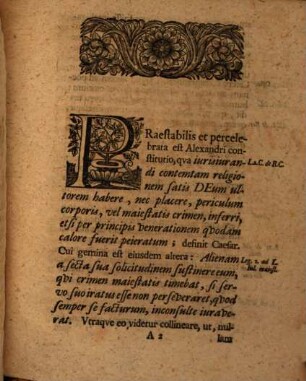 PRaestabilis et percele-
brata est Alexandri con-
stitutio, qva iurisiuran-
di contemtam religio-
nem satis DEum ul-
torem habere, nec placere, periculum
corporis, vel maiestatis crimen, inferri,
etsi per principis venerationem qvodam
calore fuerit peieratum; definit Caesar.
Cui gemina est eiusdem altera: Alienam
a secta sua solicitudinem sustinere eum,
qvi crimen maiestatis timebat, si ser-
vo suo iratus esse non perseveraret, qvod
semper se facturum, inconsulte iurave-
rat. Vtraqve eo videtur collineare, ut, nul-
A 2 lam
L. 2. C. de R. C.
Leg. 2. ad L.
Iul. maiest.